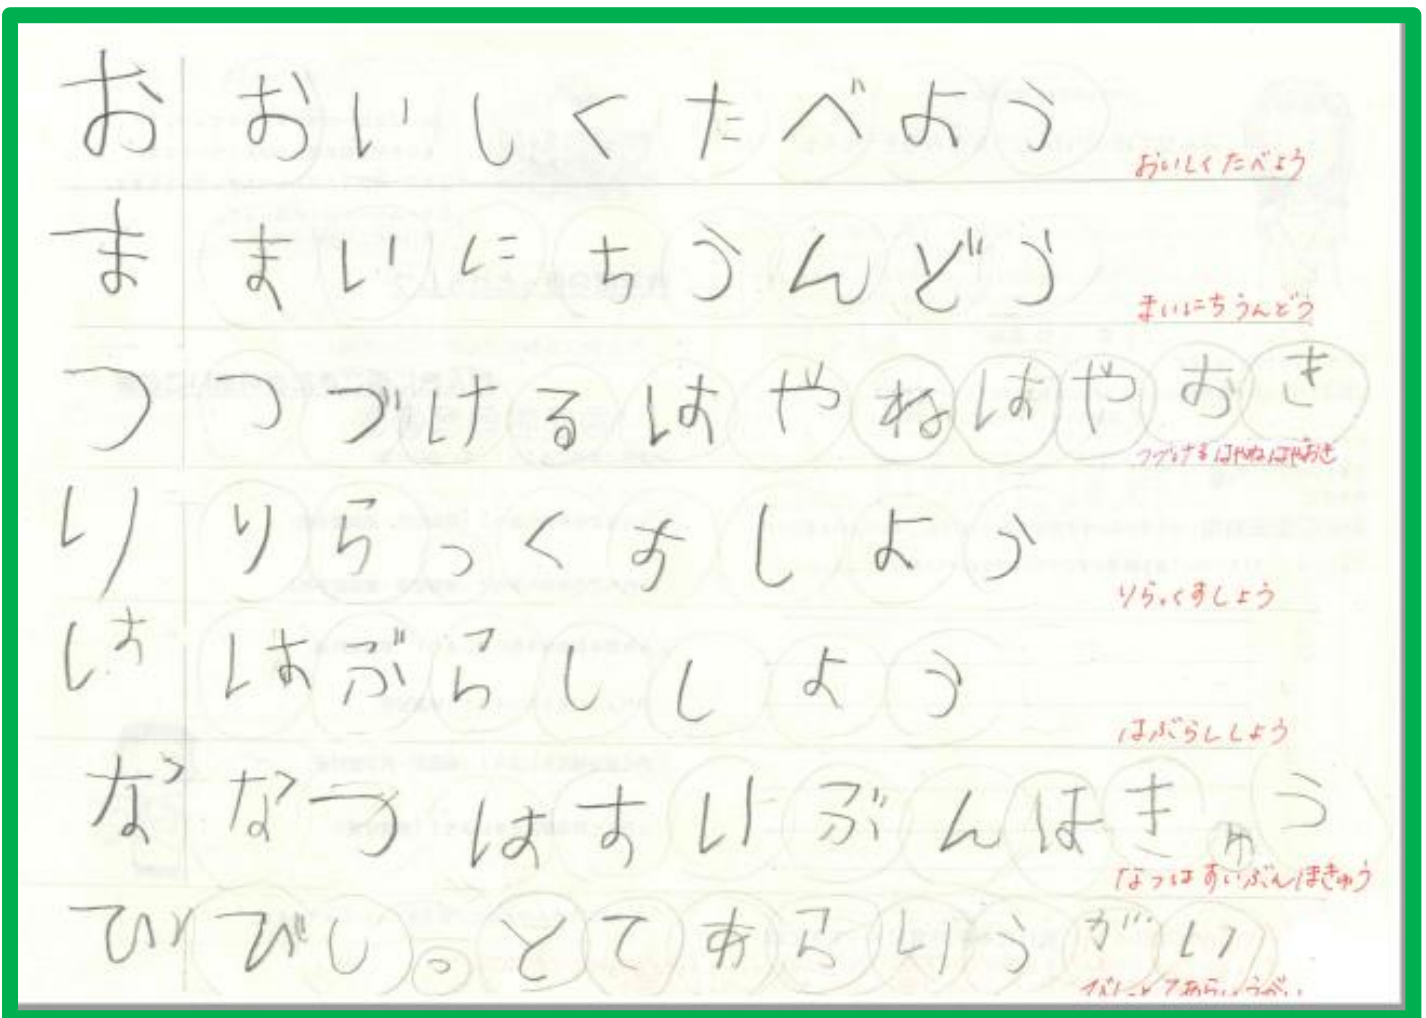 お おいしくたべよう
おいしくたべよう
ま まいにちうんどう
まいにちうんどう
つ つづけるはやねはやおき
つづけるはやねはやおき
り りらっくすしよう
りらっくすしよう
は はぶらししよう
はぶらししよう
な なつはすいぶんはきゅう
なつはすいぶんほきゅう
び びしっとてあらいうがい
びしっとてあらいうがい